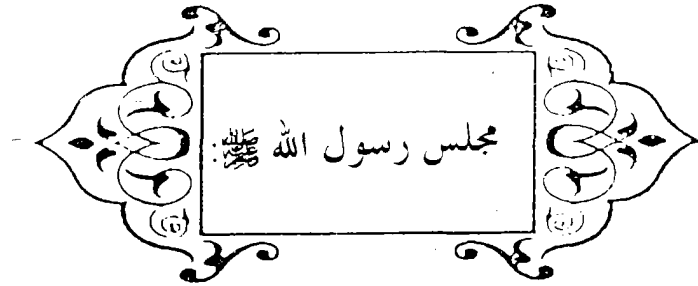 مجلس رسول الله ﷺ: